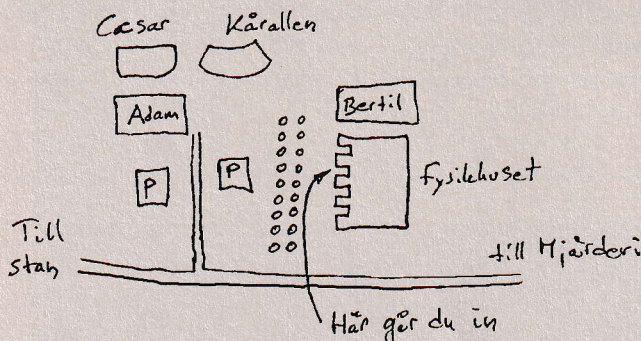 Cæsar
Kårallen
Adam
Bertil
P
P
Fysikhuset
Till
stan
till Mjärderi
Här går du in